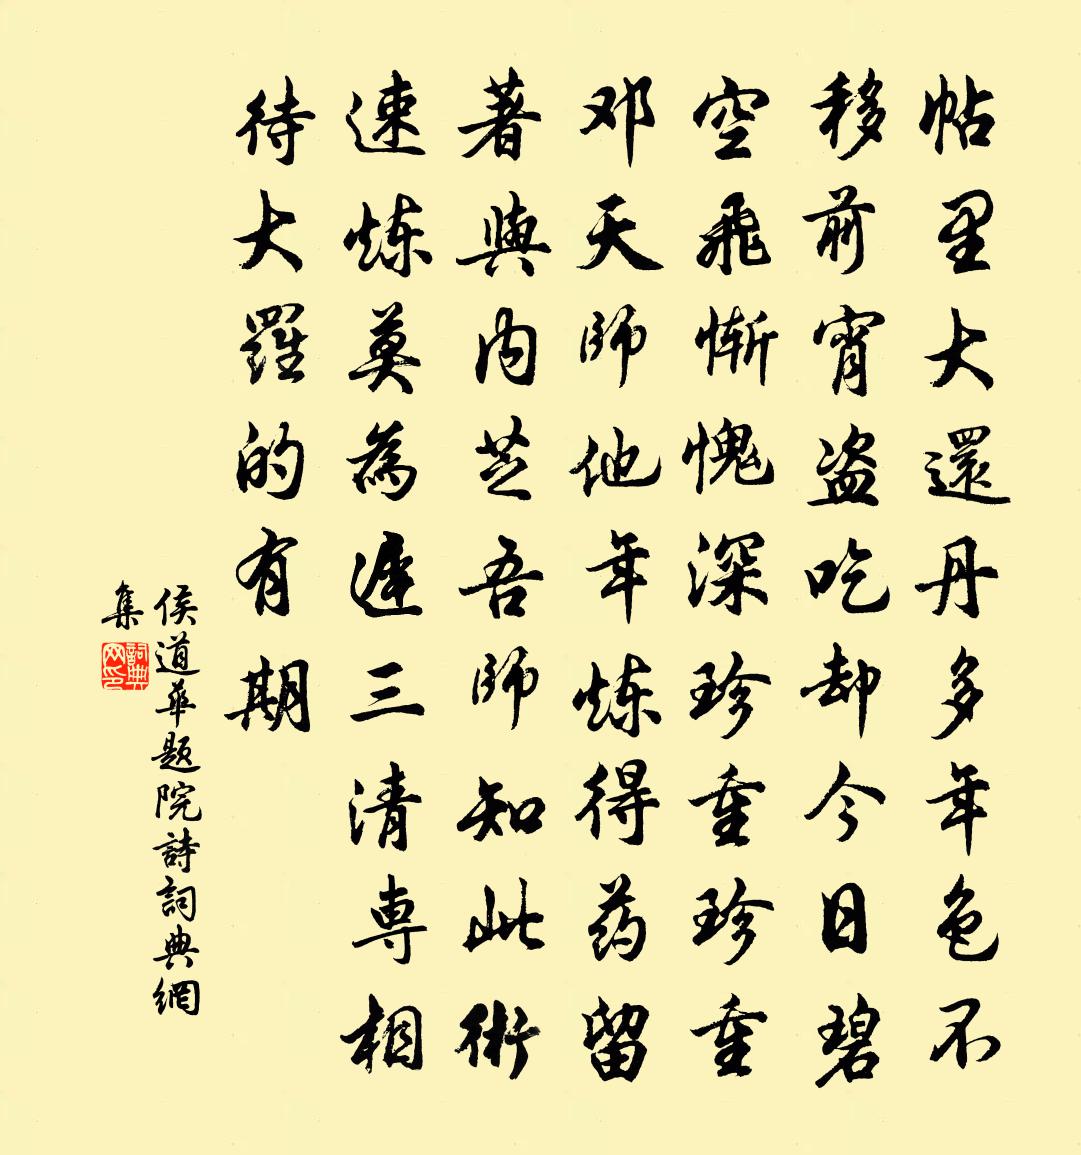 帖里大還丹多年色不
移前宵盗吃却今日碧
空飛惭愧深珍重珍重
邓天師他年炼得药留
著與内芝吾師知此術
速炼莫為遲三清専相
待大羅的有期
侯道華題院詩詞典網
集
詞典网印